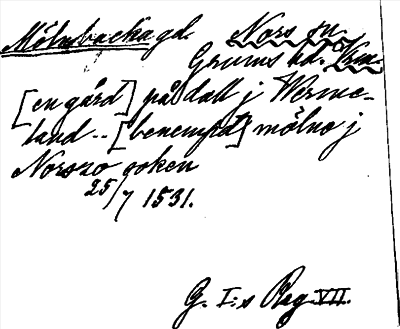 Mölnbacka gd. Nors sn
Grums hd. Vrm.
[en gård] på dall j Werme-
land -- [benempd] mölne j
Norszo soken
25/7 1531.
G. I:s Reg. VII.